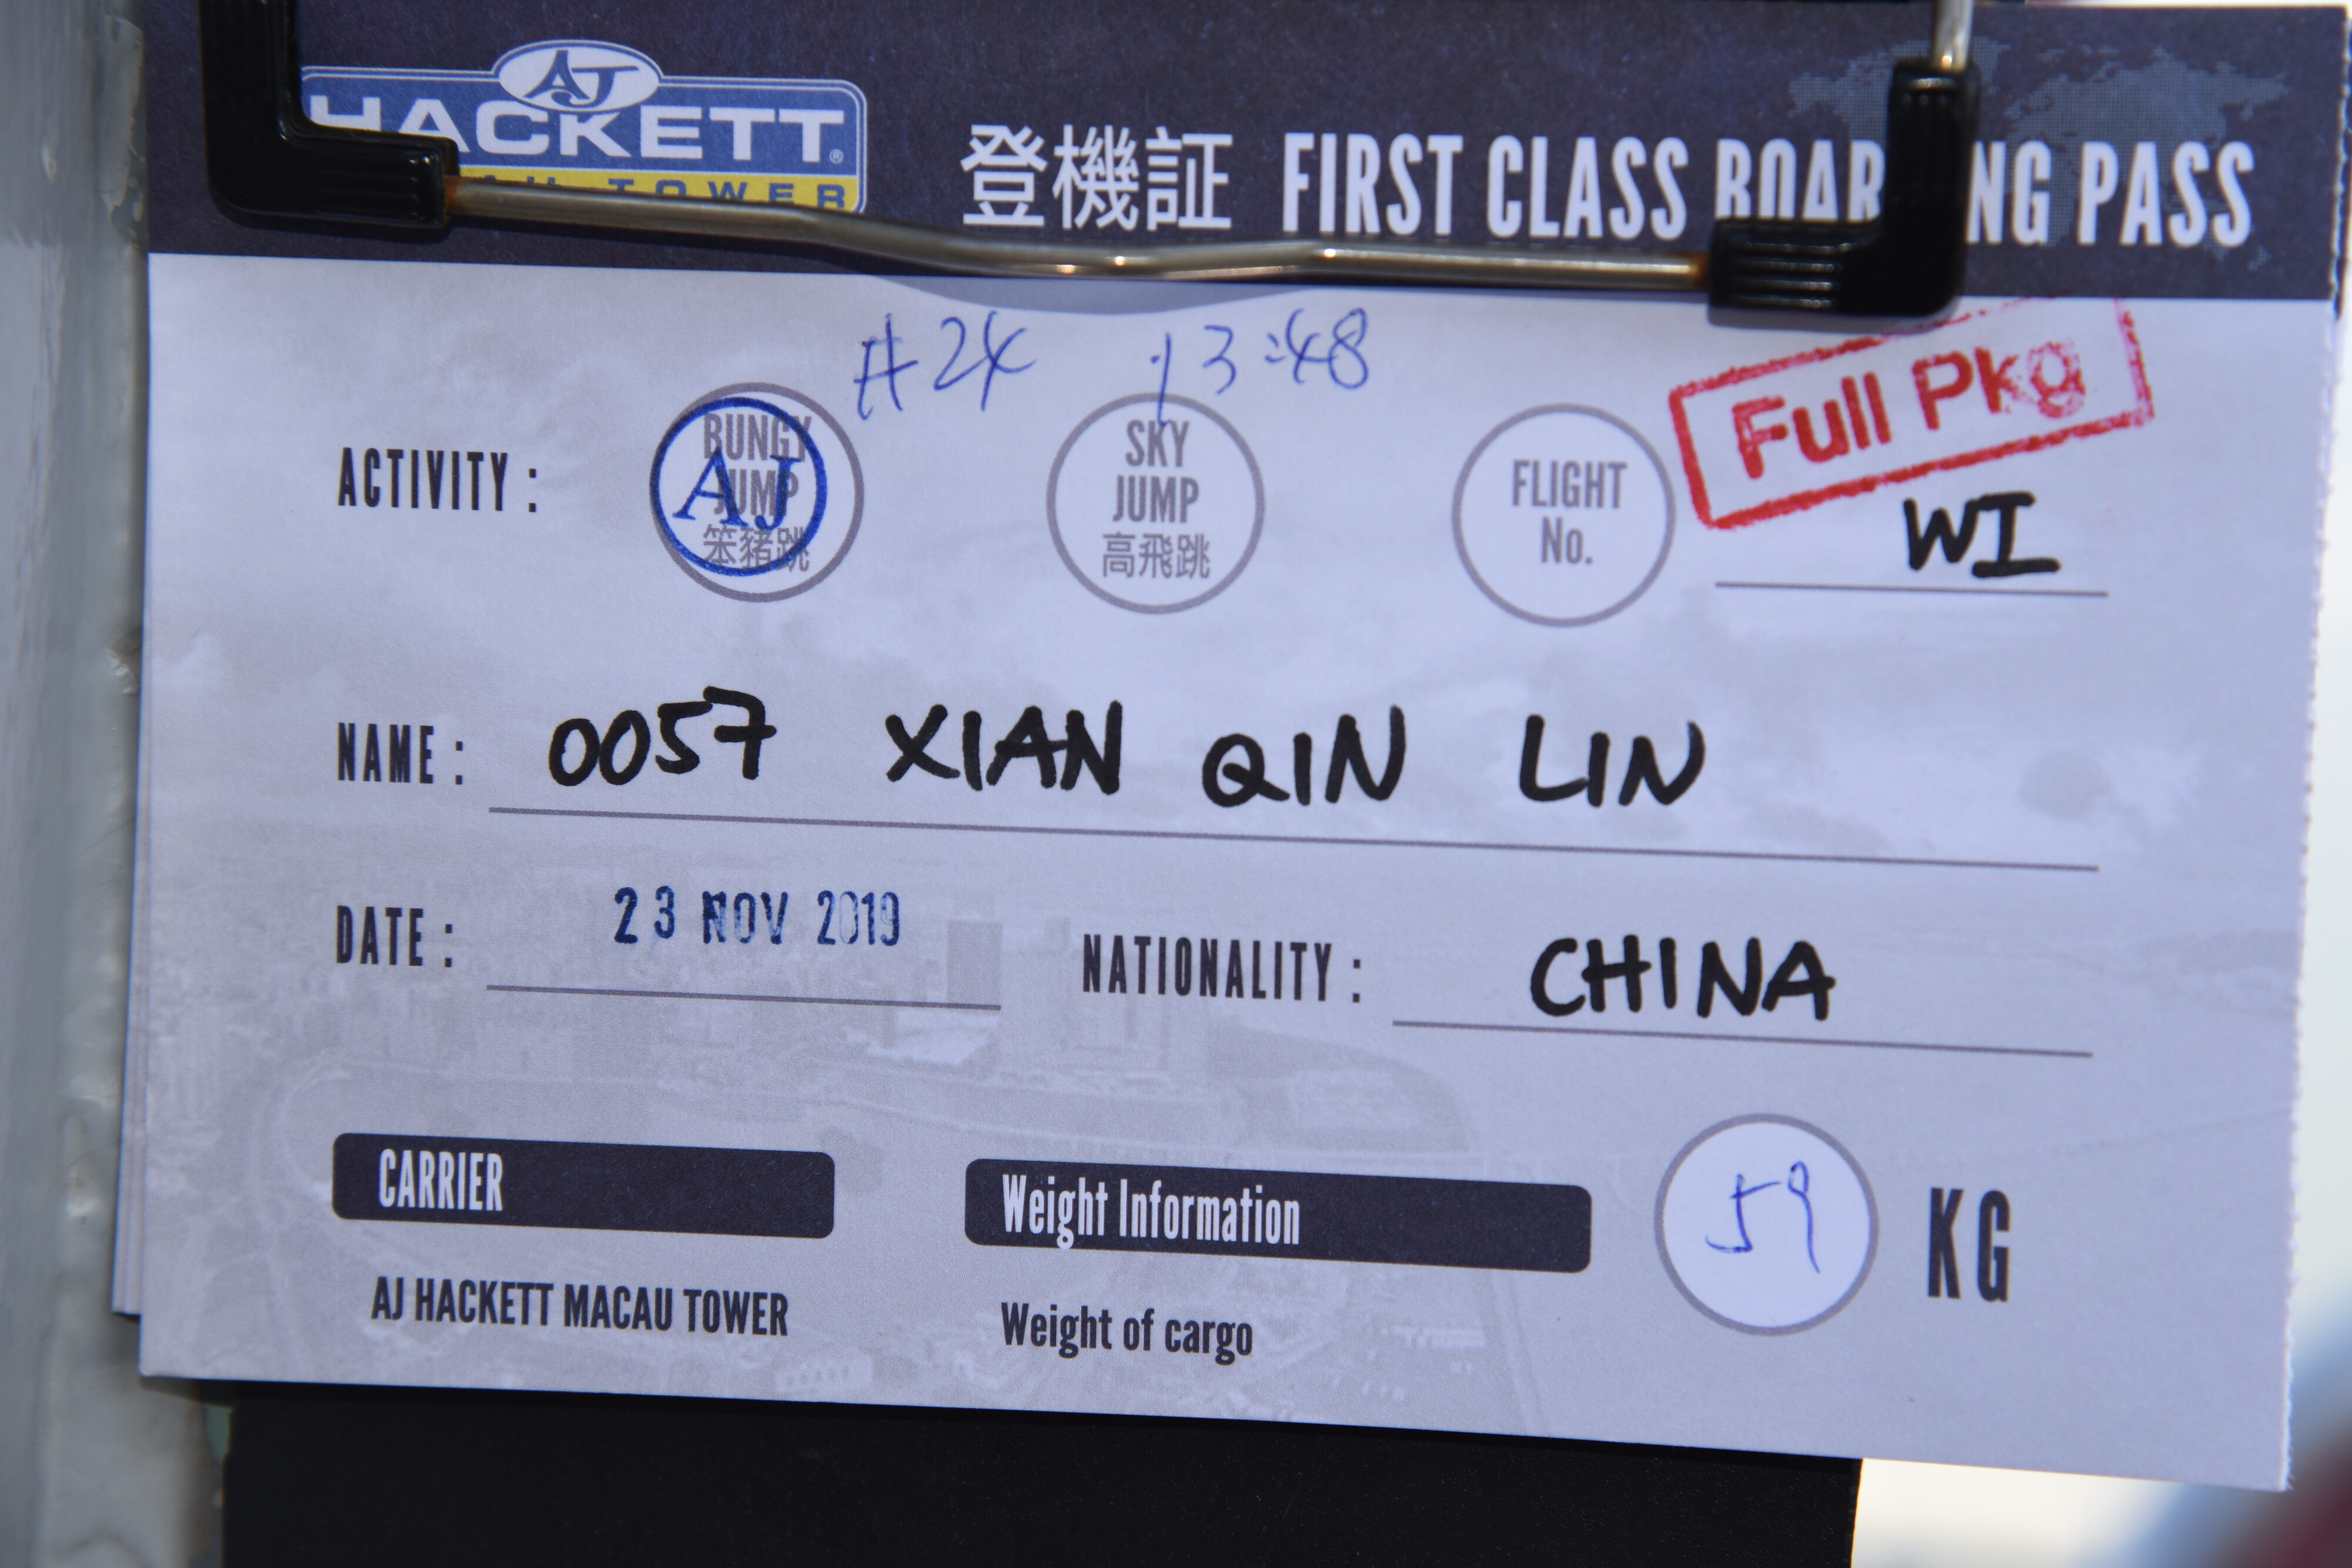 AJ
HACKETT®
TOWER
登機証 FIRST CLASS PASS
#24 13:48
Full Pkg
ACTIVITY :
BUNGY
JUMP
笨豬跳
AJ
SKY
JUMP
高飛跳
FLIGHT
No.
WI
NAME : 0057 XIAN QIN LIN
DATE : 23 NOV 2019
NATIONALITY : CHINA
CARRIER
AJ HACKETT MACAU TOWER
Weight Information
Weight of cargo
59 KG